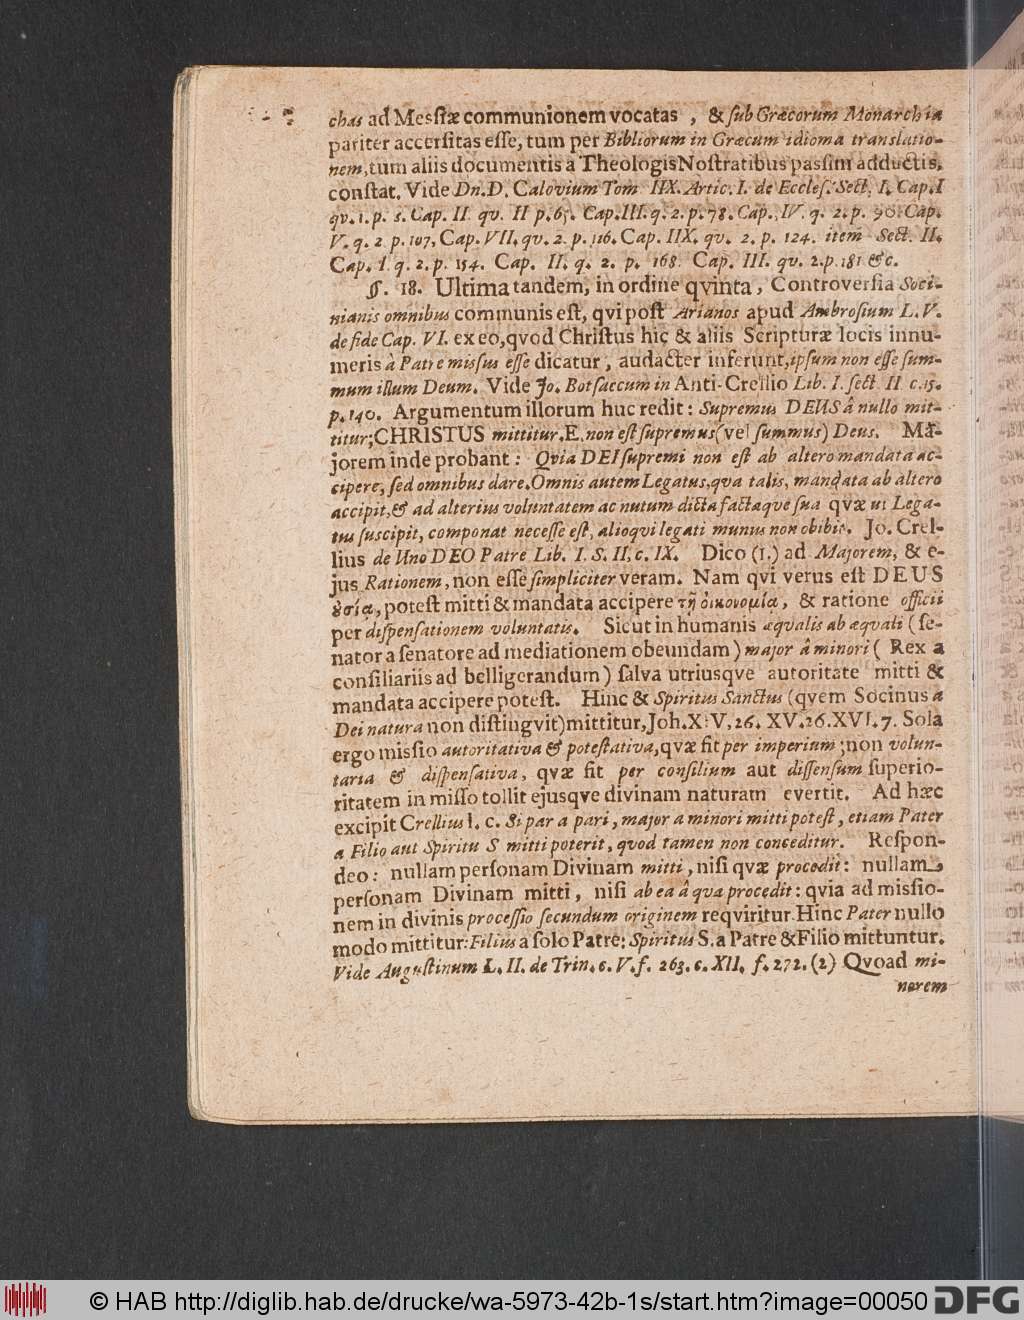 chas ad Messiæ communionem vocatas, & ſub Græcorum Monarchia
pariter accerſitas eſſe, tum per Bibliorum in Græcum idioma translatio-
nem, tum aliis documentis a Theologis Noſtratibus paſſim adductis,
conſtat. Vide Dn. D. Calovium Tom IIX. Artic. I. de Eccleſ. Sect. I. Cap. I
qv. 1. p. 5. Cap. II qv. II p. 65. Cap. III. q. 2. p. 78. Cap. IV. q. 2. p. 90. Cap.
V. q. 2 p. 107. Cap. VII. qv. 2. p. 116. Cap. IIX. qv. 2. p. 124. item Sect. II.
Cap. I q. 2. p. 154. Cap. II. q. 2. p. 168 Cap. III. qv. 2. p. 181 &c.
§. 18. Ultima tandem, in ordine qvinta, Controverſia Soci-
nianis omnibus communis eſt, qvi poſt Arianos apud Ambroſium L. V.
de fide Cap. VI. ex eo, qvod Chriſtus hic & aliis Scripturæ locis innu-
meris à Patre miſſus eſſe dicatur, audacter inferunt, ipſum non eſſe ſum-
mum illum Deum. Vide Jo. Botſaccum in Anti-Crellio Lib. I. ſect II c. 15.
p. 140. Argumentum illorum huc redit: Supremus DEUS â nullo mit-
titur; CHRISTUS mittitur. E. non eſt ſupremus (vel ſummus) Deus. Ma-
jorem inde probant: Qvia DEI ſupremi non eſt ab altero mandata ac-
cipere, ſed omnibus dare. Omnis autem Legatus, qva talis, mandata ab altero
accipit, & ad alterius voluntatem ac nutum dicta factaqve ſua qvæ ut Lega-
tus ſuscipit, componat neceſſe eſt, alioqvi legati munus non obibit. Jo. Crel-
lius de Uno DEO Patre Lib. I. S. II. c. IX. Dico (1.) ad Majorem, & e-
jus Rationem, non eſſe ſimpliciter veram. Nam qvi verus eſt DEUS
ȣσίᾳ, poteſt mitti & mandata accipere τῇ ὀικονομίᾳ, & ratione officii
per diſpenſationem voluntatis. Sicut in humanis æqvalis ab æqvali (ſe-
nator a ſenatore ad mediationem obeundam) major â minori (Rex a
conſiliariis ad belligerandum) ſalva utriusqve autoritate mitti &
mandata accipere poteſt. Hinc & Spiritus Sanctus (qvem Socinus a
Dei natura non diſtingvit) mittitur, Joh. XIV, 26. XV. 26. XVI. 7. Sola
ergo miſſio autoritativa & poteſtativa, qvæ fit per imperium; non volun-
taria & diſpenſativa, qvæ fit per conſilium aut diſſenſum ſuperio-
ritatem in miſſo tollit ejusqve divinam naturam evertit. Ad hæc
excipit Crellius l. c. Si par a pari, major a minori mitti poteſt, etiam Pater
a Filio aut Spiritu S mitti poterit, qvod tamen non conceditur. Reſpon-
deo: nullam perſonam Divinam mitti, niſi qvæ procedit: nullam
perſonam Divinam mitti, niſi ab ea â qva procedit: qvia ad miſſio-
nem in divinis proceſſio ſecundum originem reqviritur. Hinc Pater nullo
modo mittitur: Filius a ſolo Patre: Spiritus S. a Patre & Filio mittuntur.
Vide Auguſtinum L. II. de Trin. c. V. f. 263. c. XII. f. 272. (2) Qvoad mi-
norem
© HAB http://diglib.hab.de/drucke/wa-5973-42b-1s/start.htm?image=00050 DFG